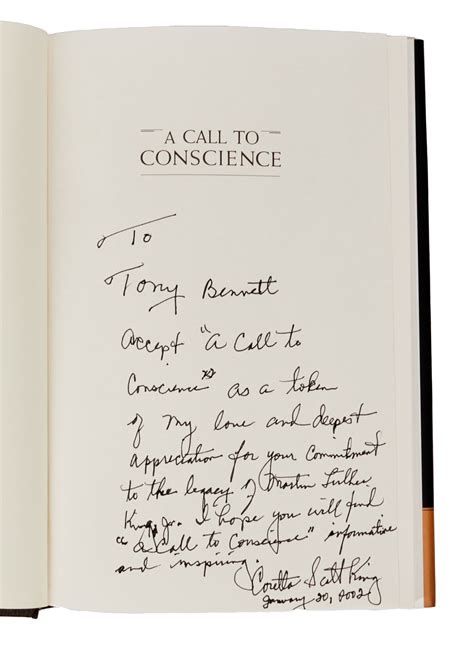 A CALL TO
CONSCIENCE
To
Tony Bennett
Accept "A Call to
Conscience" as a token
of my love and deepest
appreciation for your commitment
to the legacy of Martin Luther
King, Jr. I hope you will find
"A Call to Conscience" informative
and inspiring.
Coretta Scott King
January 20, 2002